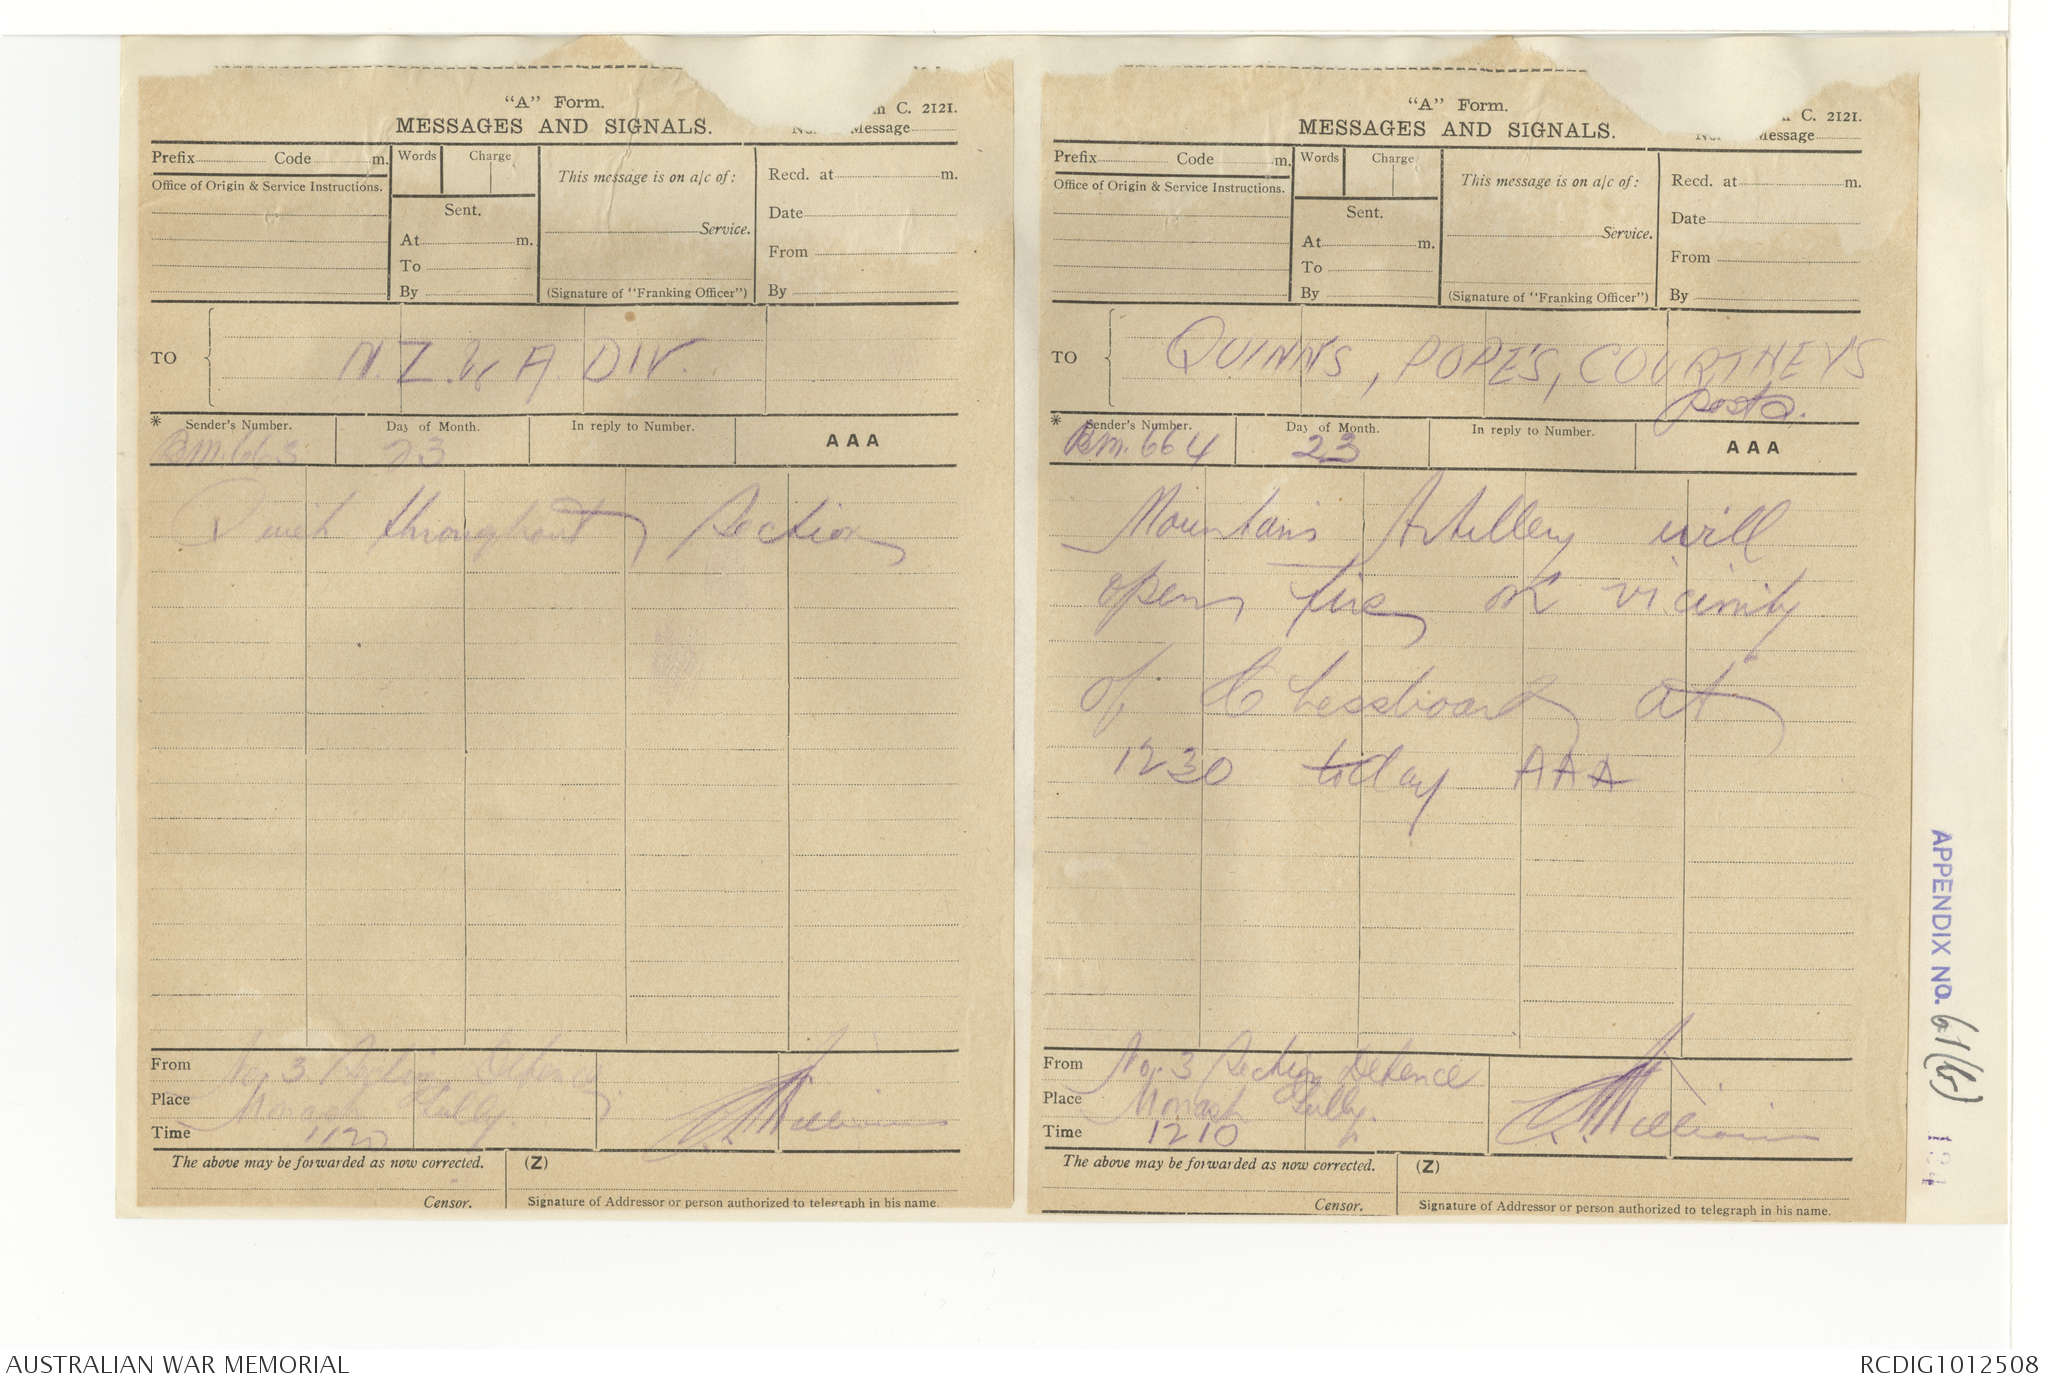 "A" Form.
C. 2121.
MESSAGES AND SIGNALS.
Message
Prefix Code m.
Words
Charge
This message is on a/c of:
Recd. at m.
Office of Origin & Service Instructions.
Sent.
Date
Service.
At m.
From
To
By
(Signature of "Franking Officer")
By
TO
N.Z. & A. DIV.
* Sender's Number.
Day of Month.
In reply to Number.
AAA
BM.663
23
Quiet throughout Section
From No. 3 Section Defence
Place Monash Gully.
Time 1120
The above may be forwarded as now corrected.
(Z)
Censor.
Signature of Addressor or person authorized to telegraph in his name.
"A" Form.
C. 2121.
MESSAGES AND SIGNALS.
Message
Prefix Code m.
Words
Charge
This message is on a/c of:
Recd. at m.
Office of Origin & Service Instructions.
Sent.
Date
Service.
At m.
From
To
By
(Signature of "Franking Officer")
By
TO
QUINNS, POPE'S, COURTNEYS
posts.
* Sender's Number.
Day of Month.
In reply to Number.
AAA
BM.664
23
Mountain Artillery will
open fire on vicinity
of Chessboard at
1230 today AAA
From No. 3 Section Defence
Place Monash Gully.
Time 1210
The above may be forwarded as now corrected.
(Z)
Censor.
Signature of Addressor or person authorized to telegraph in his name.
APPENDIX NO. 61(b)
AUSTRALIAN WAR MEMORIAL
RCDIG1012508